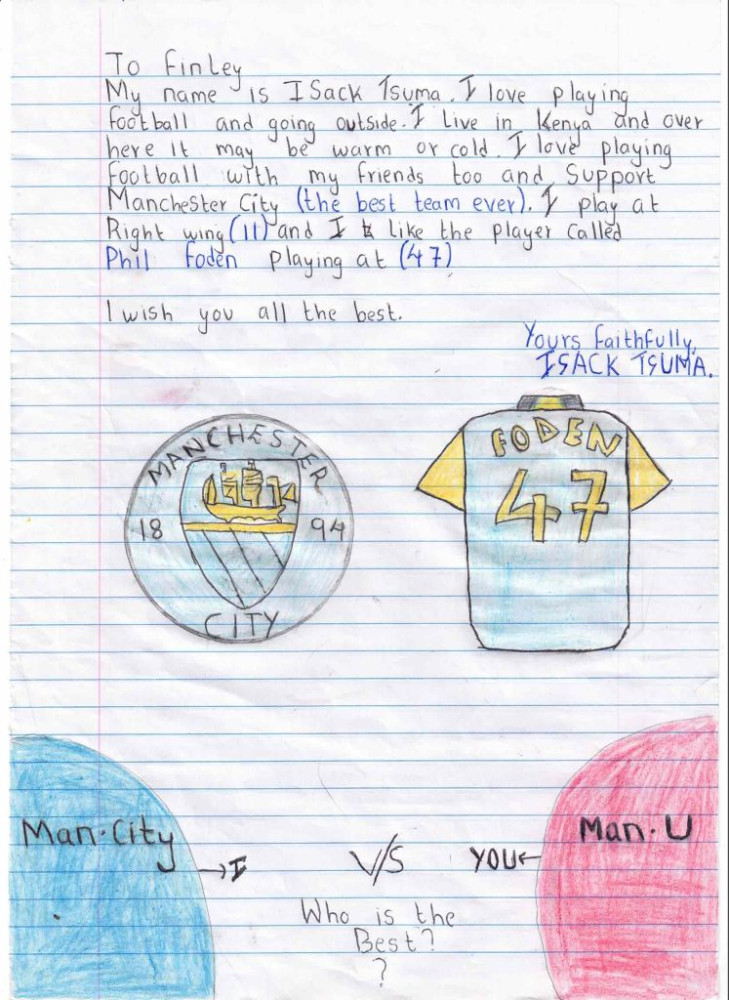 To Finley
My name is ISack Tsuma. I love playing
football and going outside. I Live in Kenya and over
here It may be warm or cold. I love playing
football with my friends too and Support
Manchester City (the best team ever). I play at
Right wing (11) and I like the player called
Phil Foden playing at (47)
I wish you all the best.
Yours faithfully,
ISACK TSUMA.
MANCHESTER
18 94
CITY
FODEN
47
Man.City
→ I
V/S
YOU ←
Man.U
Who is the
Best?
?